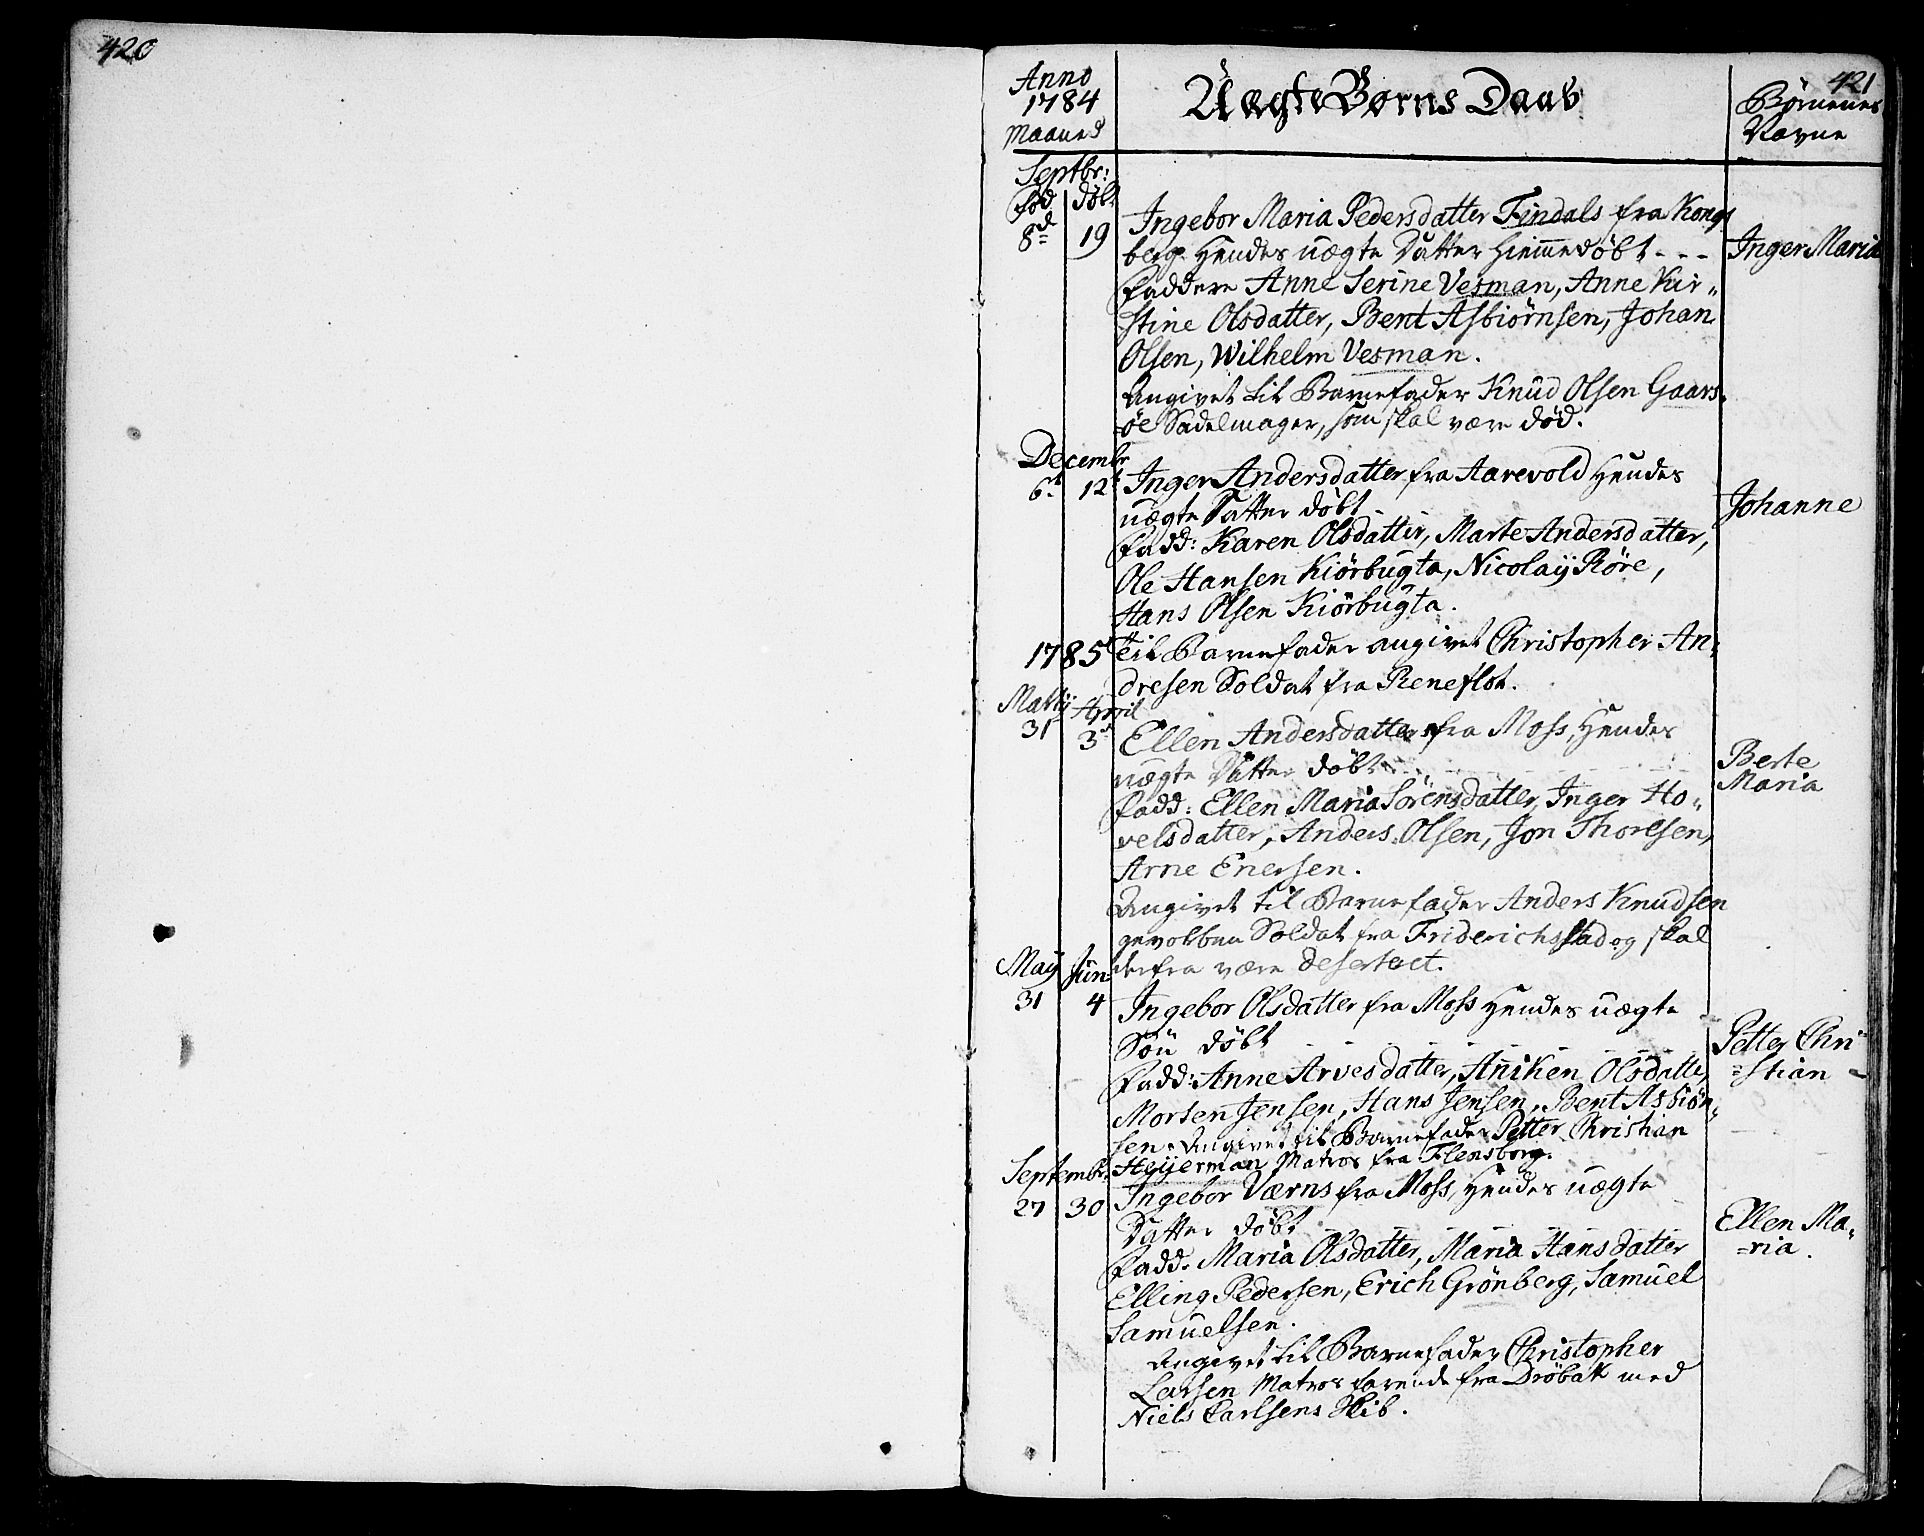 420
421
Anno
1784
Maaned
Uægte Børns Daab
Børnenes
Navne
Septbr:
fød døbt
8de 19
Ingebor Maria Pedersdatter Findals fra Kongs
berg Hendes uægte Datter hiemmedøbt - - -
Inger Maria
Faddere Anne Serine Vesman, Anne Kir„
stine Olsdatter, Bent Asbiørnsen, Johan
Olsen, Wilhelm Vesman.
Angivet til Barnefader Knud Olsen Gaars„
øe Sadelmager, som skal være død.
Decembr
6t 12t
Inger Andersdatter fra Aarevold Hendes
uægte Datter døbt
Johanne
Fadd: Karen Olsdatter, Marte Andersdatter,
Ole Hansen Kiörbugta, Nicolaij Röre,
Hans Olsen Kiörbugta.
1785
til Barnefader angivet Christopher An„
dresen Soldat fra Reneflot.
Martij April
31 3d
Ellen Andersdatter fra Moss, Hendes
uægte Datter døbt
Berte
Maria
Fadd: Ellen Maria Sörensdatter, Inger Ho„
velsdatter, Anders Olsen, Jon Thoresen,
Arne Enersen.
Angivet til Barnefader Anders Knudsen
gevorben Soldat fra Friderichstad og skal
derfra være deserteet.
Maij Jun:
31 4
Ingebor Olsdatter fra Moss Hendes uægte
Søn døbt
Petter Chri
=stian
Fadd: Anne Arvesdatter, Aniken Olsdatter,
Morten Jensen, Hans Jensen, Bent Asbiön„
sen. Angivet til Barnefader Petter Christian
Heyerman Matros fra Flensborg.
Septembr.
27 30
Ingebor Værns fra Moss, Hendes uægte
Datter døbt
Ellen Ma„
=ria.
Fadd. Maria Olsdatter, Maria Hansdatter
Elling Pedersen, Erich Grönberg, Samuel
Samuelsen.
Angivet til Barnefader Christopher
Larsen Matros farende fra Dröbak med
Niels Carlsens Skib.